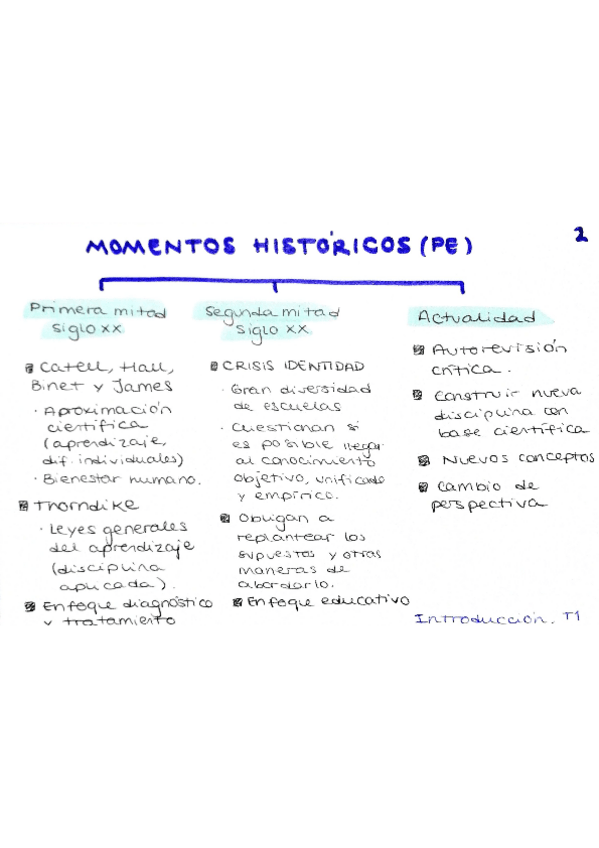 MOMENTOS HISTÓRICOS (PE)
2
Primera mitad
siglo XX
Catell, Hall,
Binet y James
· Aproximación
científica
(aprendizaje,
dif. individuales)
· Bienestar humano.
Thorndike
· Leyes generales
del aprendizaje
(disciplina
aplicada).
Enfoque diagnóstico
y tratamiento
Segunda mitad
siglo XX
CRISIS IDENTIDAD
· Gran diversidad
de escuelas
· Cuestionan si
es posible llegar
al conocimiento
objetivo, unificado
y empírico.
Obligan a
replantear los
supuestos y otras
maneras de
abordarlo.
Enfoque educativo
Actualidad
Autorevisión
crítica.
Construir nueva
disciplina con
base científica
Nuevos conceptos
Cambio de
perspectiva
Introducción. T1